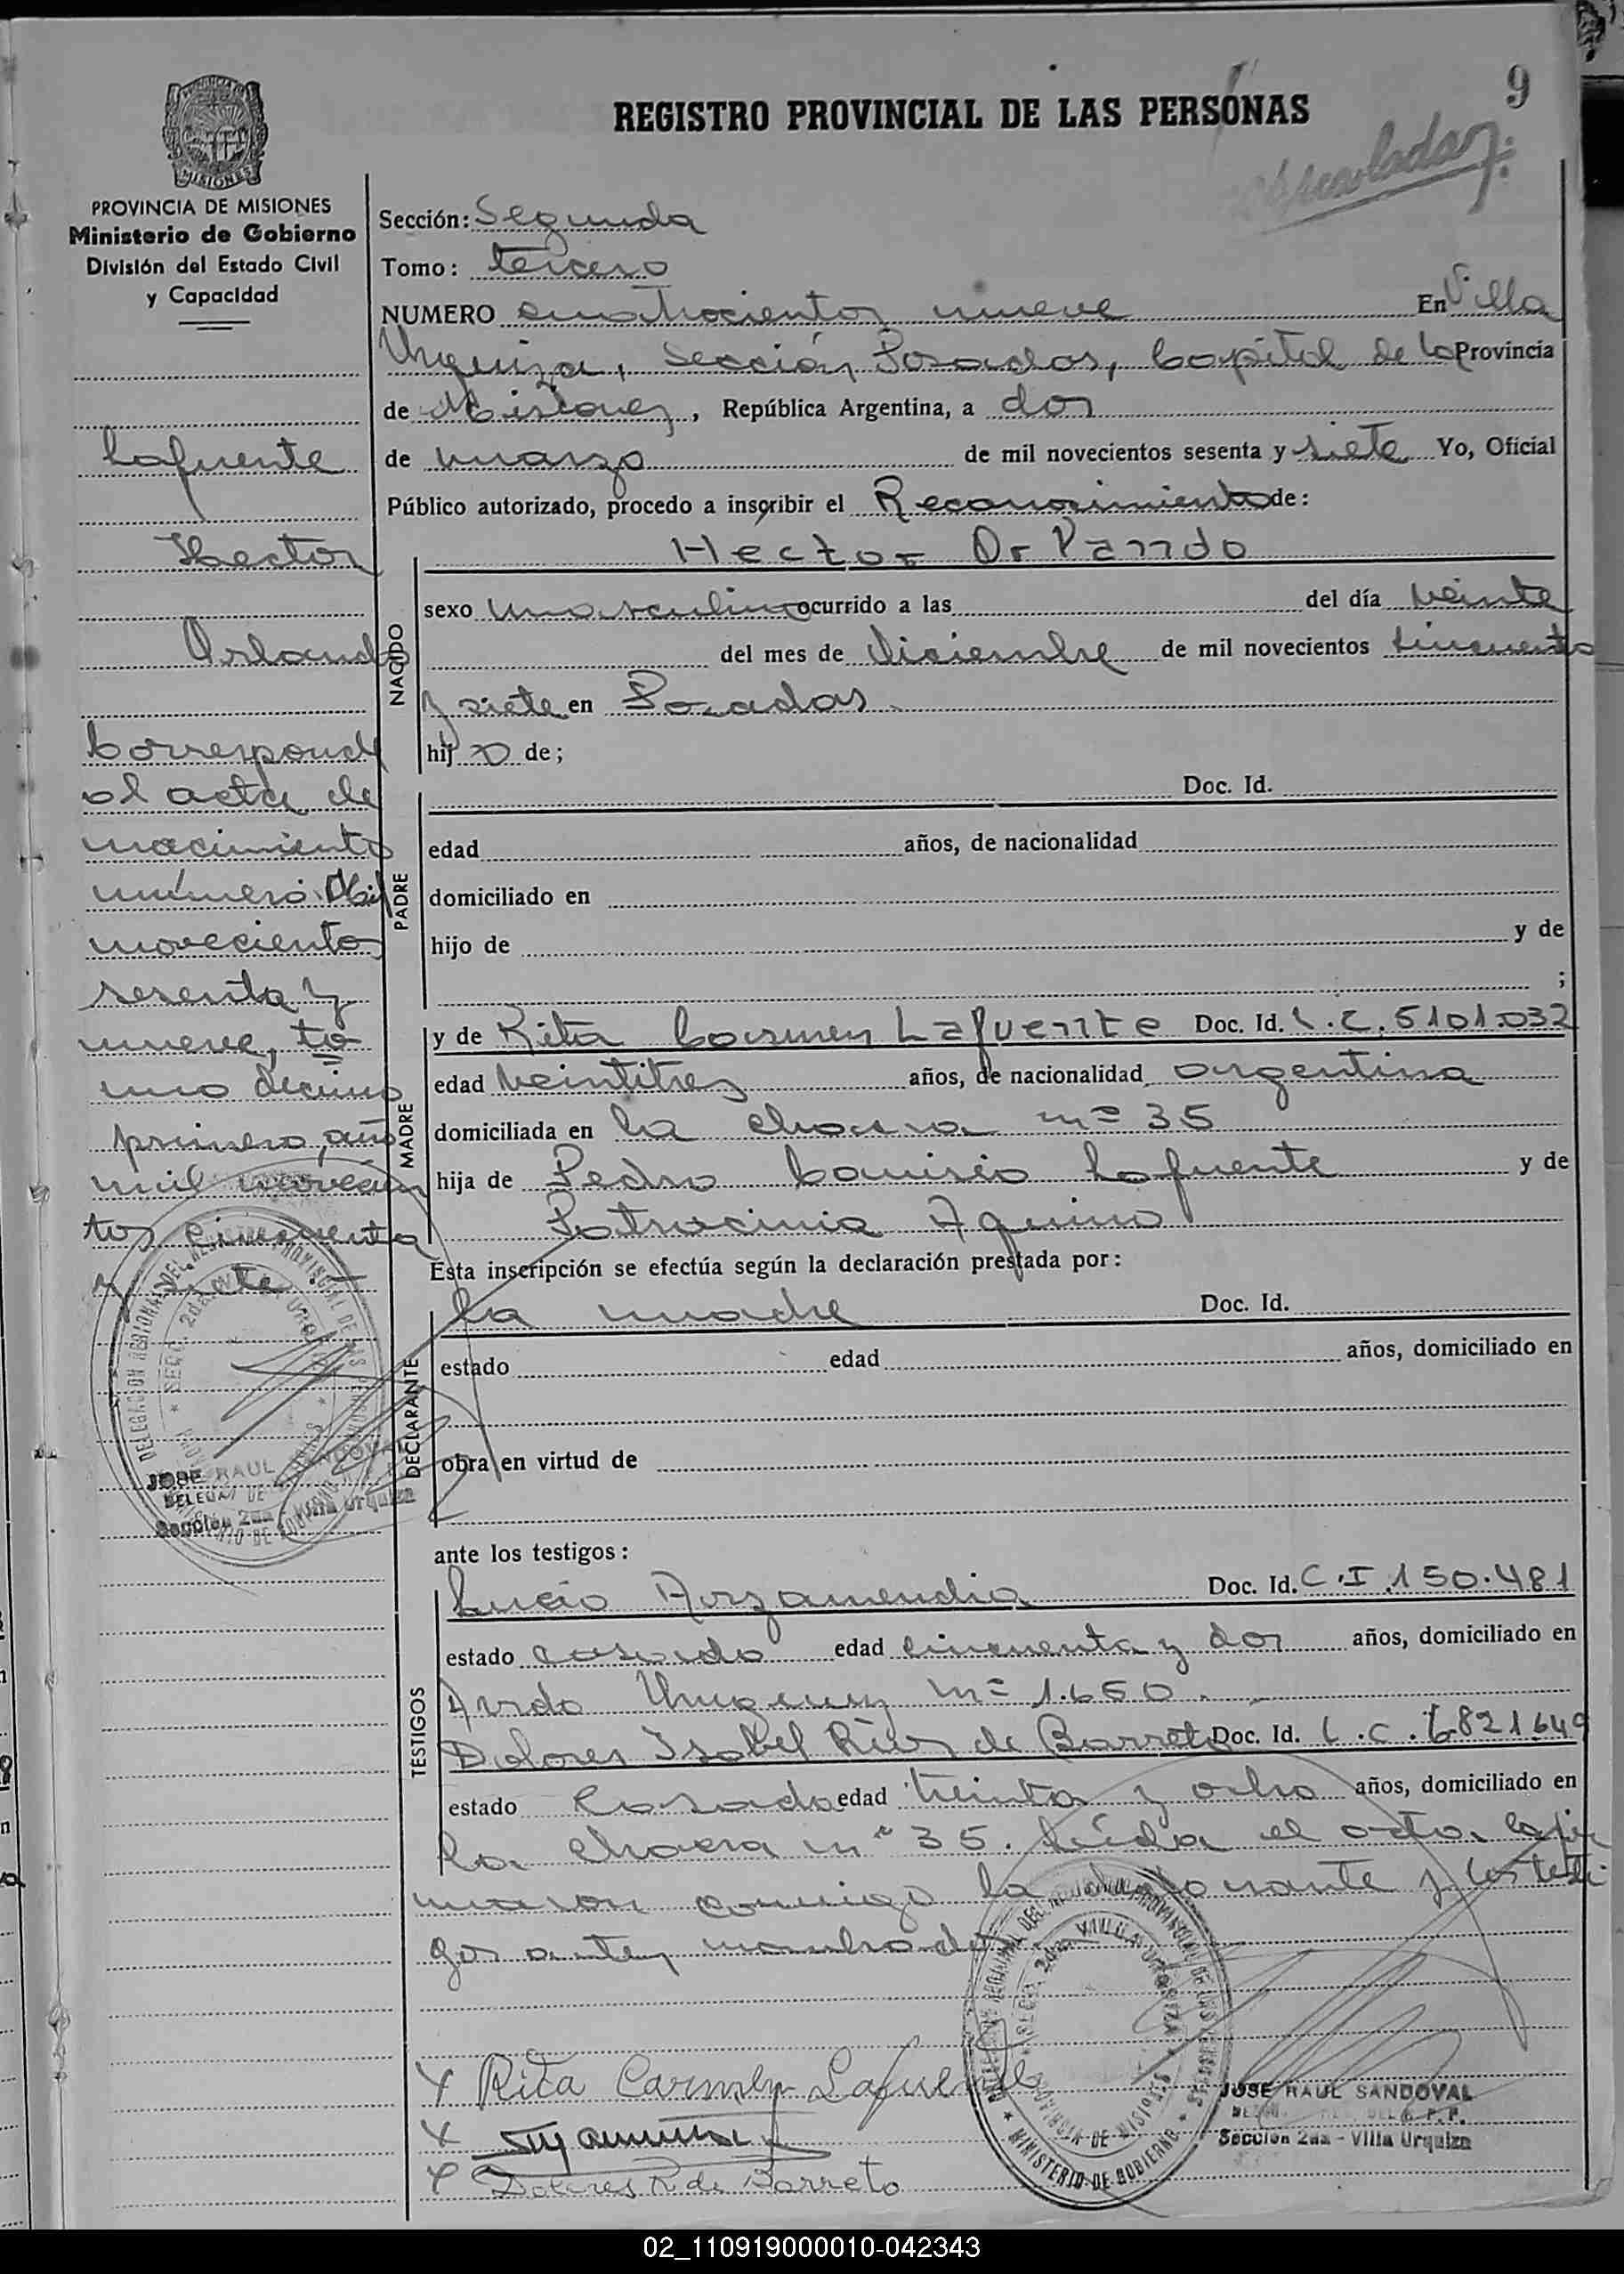 9
REGISTRO PROVINCIAL DE LAS PERSONAS
MISIONES
PROVINCIA DE MISIONES
Ministerio de Gobierno
División del Estado Civil
y Capacidad
Lafuente
Hector
Orlando
Corresponde
al acta de
nacimiento
número Mil
novecientos
sesenta y
nueve, to
mo decimo
primero, año
mil novecien
tos cincuenta
y siete
JOSE RAUL SANDOVAL
Sección 2da - Villa Urquiza
Sección: Segunda
Tomo: tercero
NUMERO cuatrocientos nueve En Villa
Urquiza, Sección Posadas, Capital de la Provincia
de Misiones, República Argentina, a dos
de marzo de mil novecientos sesenta y siete Yo, Oficial
Público autorizado, procedo a inscribir el Reconocimiento de:
Hector Orlando
NACIDO
sexo masculino ocurrido a las del día veinte
del mes de diciembre de mil novecientos cincuenta
y siete en Posadas.
hijo de;
PADRE
Doc. Id.
edad años, de nacionalidad
domiciliado en
hijo de y de
;
MADRE
y de Rita Carmen Lafuente Doc. Id. L.C. 5101.032
edad veintitres años, de nacionalidad argentina
domiciliada en la chacra nº 35
hija de Pedro Lafuente y de
Patrocinia Aquino
Esta inscripción se efectúa según la declaración prestada por:
DECLARANTE
la madre Doc. Id.
estado edad años, domiciliado en
obra en virtud de
ante los testigos:
TESTIGOS
Lucio Arzamendia Doc. Id. C.I. 150.481
estado casado edad cincuenta y dos años, domiciliado en
Avda Uruguay nº 1.650.
Dolores Isabel Rios de Barreto Doc. Id. L.C. 6.821.649
estado casada edad edad treinta y ocho años, domiciliado en
la chacra nº 35. Leída el acta, la fir
maron conmigo la declarante y los testi
gos antes nombrados
Rita Carmen Lafuente
Dolores R. de Barreto
MINISTERIO DE GOBIERNO
PROVINCIA DE MISIONES
JOSE RAUL SANDOVAL
Sección 2da - Villa Urquiza
02_110919000010-042343